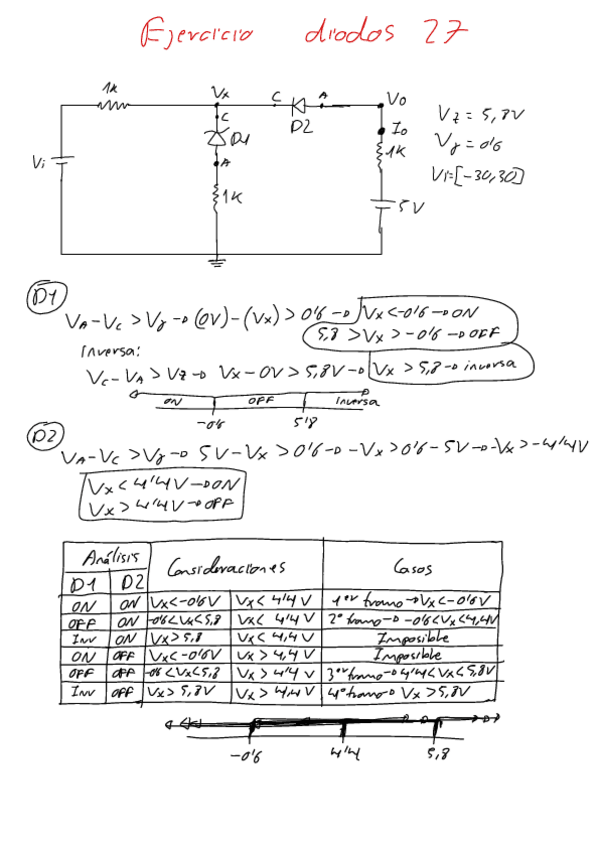 Ejercicio diodos 27
1k
Vx
C
A
Vo
C
D1
A
D2
Io
1K
Vi
1K
5V
Vz = 5,8V
Vγ = 0'6
Vi=[-30,30]
D1
VA-VC > Vγ → (0V)-(Vx) > 0'6 → Vx<-0'6 → ON
5,8 > Vx > -0'6 → OFF
Inversa:
VC-VA > Vz → Vx-0V > 5,8V → Vx > 5,8 → inversa
ON OFF Inversa
-0'6 5'8
D2
VA-VC > Vγ → 5V-Vx > 0'6 → -Vx > 0'6-5V → -Vx > -4'4V
Vx < 4'4V → ON
Vx > 4'4V → OFF
Análisis Consideraciones Casos
D1 D2
ON ON Vx<-0'6V Vx< 4'4V 1er tramo → Vx<-0'6V
OFF ON -0'6<Vx<5,8 Vx< 4'4V 2º tramo → -0'6<Vx<4,4V
Inv ON Vx>5,8 Vx<4,4V Imposible
ON OFF Vx<-0'6V Vx>4'4V Imposible
OFF OFF -0'6<Vx<5,8 Vx>4'4V 3er tramo → 4'4<Vx<5,8V
Inv OFF Vx>5,8V Vx>4,4V 4º tramo → Vx>5,8V
-0'6 4'4 5,8